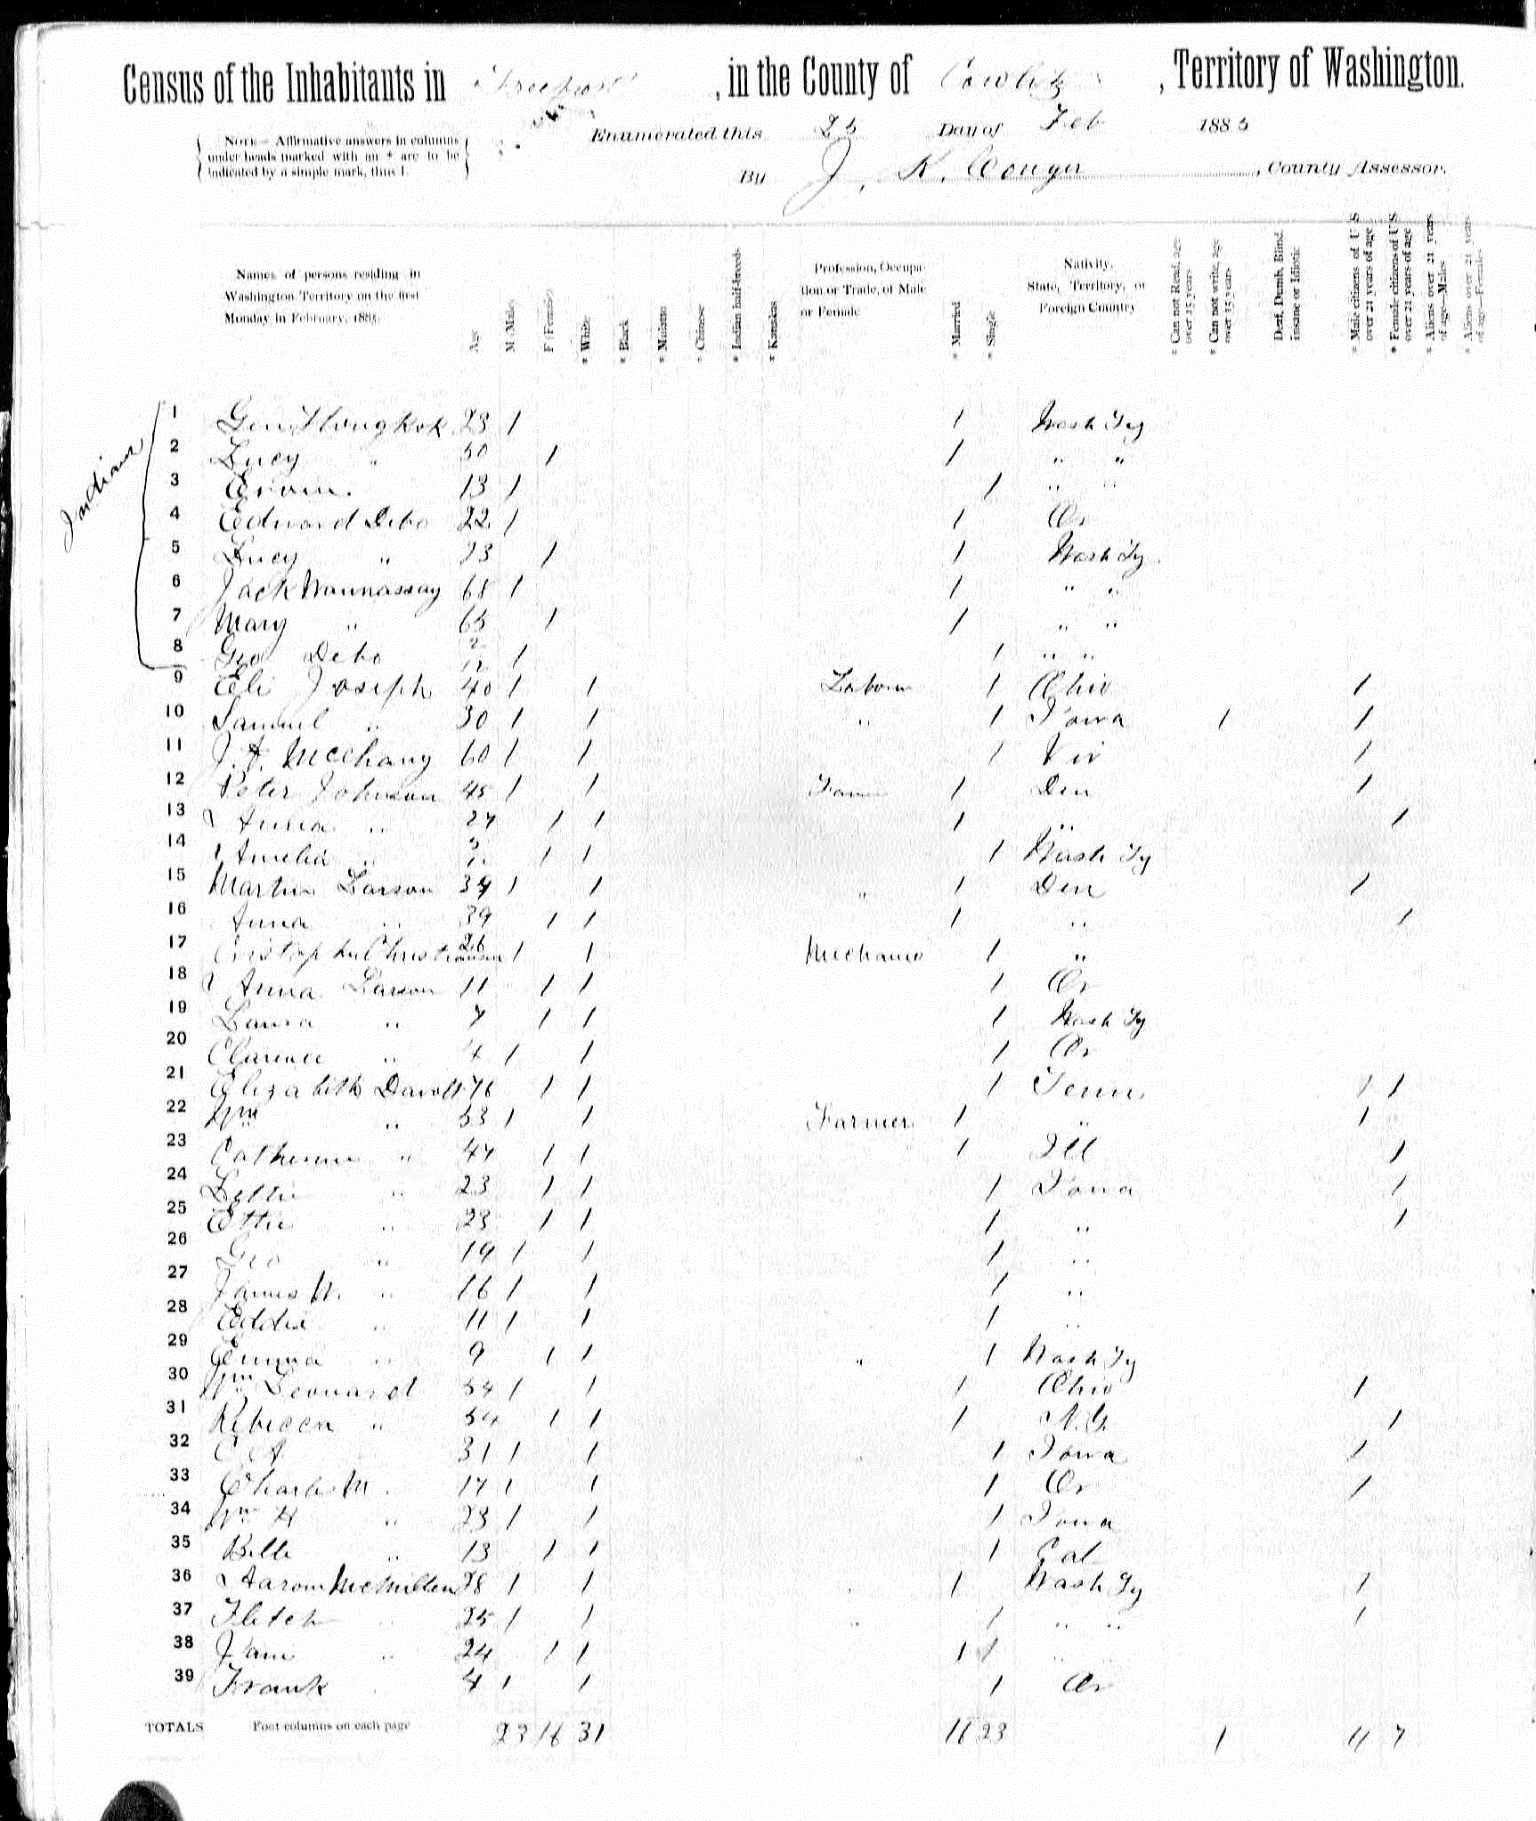 Census of the Inhabitants in Freeport, in the County of Cowlitz, Territory of Washington.
{ NOTE—Affirmative answers in columns under heads marked with an * are to be indicated by a simple mark, thus 1. }
Enumerated this 25 Day of Feb 1885
By J. K. Conger, County Assessor.
Names of persons residing in Washington Territory on the first Monday in February, 1885.
Age
M (Male)
F (Female)
* White
* Black
* Mulatto
* Chinese
* Indian half-breeds
* Kanakas
Profession, Occupation or Trade, of Male or Female
* Married
* Single
Nativity, State, Territory, or Foreign Country
* Can not Read, age over 15 years
* Can not write, age over 15 years
Deaf, Dumb, Blind, insane or Idiotic
* Male citizens of U S over 21 years of age
* Female citizens of U S over 21 years of age
* Aliens over 21 years of age—Males
* Aliens over 21 years of age—Females
Indians
1 Geo 23 1 1 Wash Ty
2 Lucy " 50 1 1 " "
3 13 1 1 " "
4 Edward Debo 22 1 1 Or
5 Lucy " 23 1 1 Wash Ty
6 Jack Wannassay 68 1 1 " "
7 Mary " 65 1 1 " "
8 Geo Debo 2/12 1 1 " "
9 Eli Joseph 40 1 1 Labor 1 Ohio 1
10 Samuel " 30 1 1 " 1 Iowa 1 1
11 60 1 1 1 Vir 1
12 Peter Johnson 45 1 1 Farm 1 Den 1
13 Anna " 27 1 1 1 " 1
14 Amelia " 1 1 1 Wash Ty
15 Martin Larson 34 1 1 " 1 Den 1
16 Anna " 39 1 1 1 " 1
17 Cristopher Christiansen 26 1 1 Mechanic 1 "
18 Anna Larson 11 1 1 1 Or
19 Laura " 7 1 1 1 Wash Ty
20 Clarence " 4 1 1 1 Or
21 Elizabeth Davolt 76 1 1 1 Tenn 1 1
22 Wm " 53 1 1 Farmer 1 " 1
23 Catherine " 47 1 1 1 Ill 1
24 Lettie " 23 1 1 1 Iowa 1
25 Ettie " 23 1 1 1 " 1
26 Geo " 19 1 1 1 "
27 James W. " 16 1 1 1 "
28 Eddie " 11 1 1 1 "
29 Emma " 9 1 1 " 1 Wash Ty
30 Wm Leonard 54 1 1 1 Ohio 1
31 Rebecca " 54 1 1 1 N.Y. 1
32 C A 31 1 1 1 Iowa 1
33 Charles M 17 1 1 1 Or 1
34 Wm H " 23 1 1 1 Iowa
35 Belle " 13 1 1 1 Cal
36 Aaron McMillen 28 1 1 1 Wash Ty 1
37 Fletch " 25 1 1 1 " " 1
38 " 24 1 1 1 1 "
39 Frank 4 1 1 1 Or
TOTALS Foot columns on each page 23 16 31 16 23 1 11 7